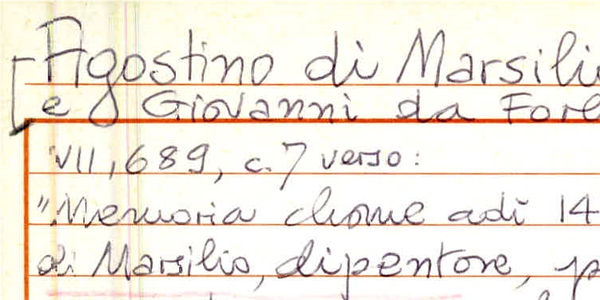 [Agostino di Marsili
e Giovanni da Forl
VII, 689, c. 7 verso:
"Memoria chome adi 14
di Marsilio, dipentore, p